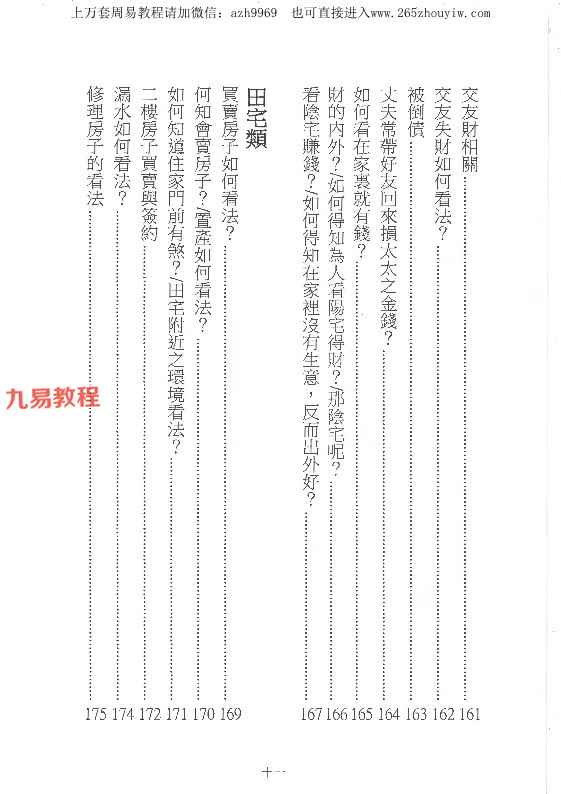 上万套周易教程请加微信：azh9969　也可直接进入www.265zhouyiw.com
交友財相關 161
交友失財如何看法？ 162
被倒債 163
丈夫常帶好友回來損太太之金錢？ 164
如何看在家裏就有錢？ 165
財的內外？/如何得知為人看陽宅得財？/那陰宅呢？ 166
看陰宅賺錢？/如何得知在家裡沒有生意，反而出外好？ 167
田宅類
買賣房子如何看法？ 169
何知會賣房子？/置產如何看法？ 170
如何知道住家門前有煞？/田宅附近之環境看法？ 171
二樓房子買賣與簽約 172
漏水如何看法？ 174
修理房子的看法 175
九易教程
十一